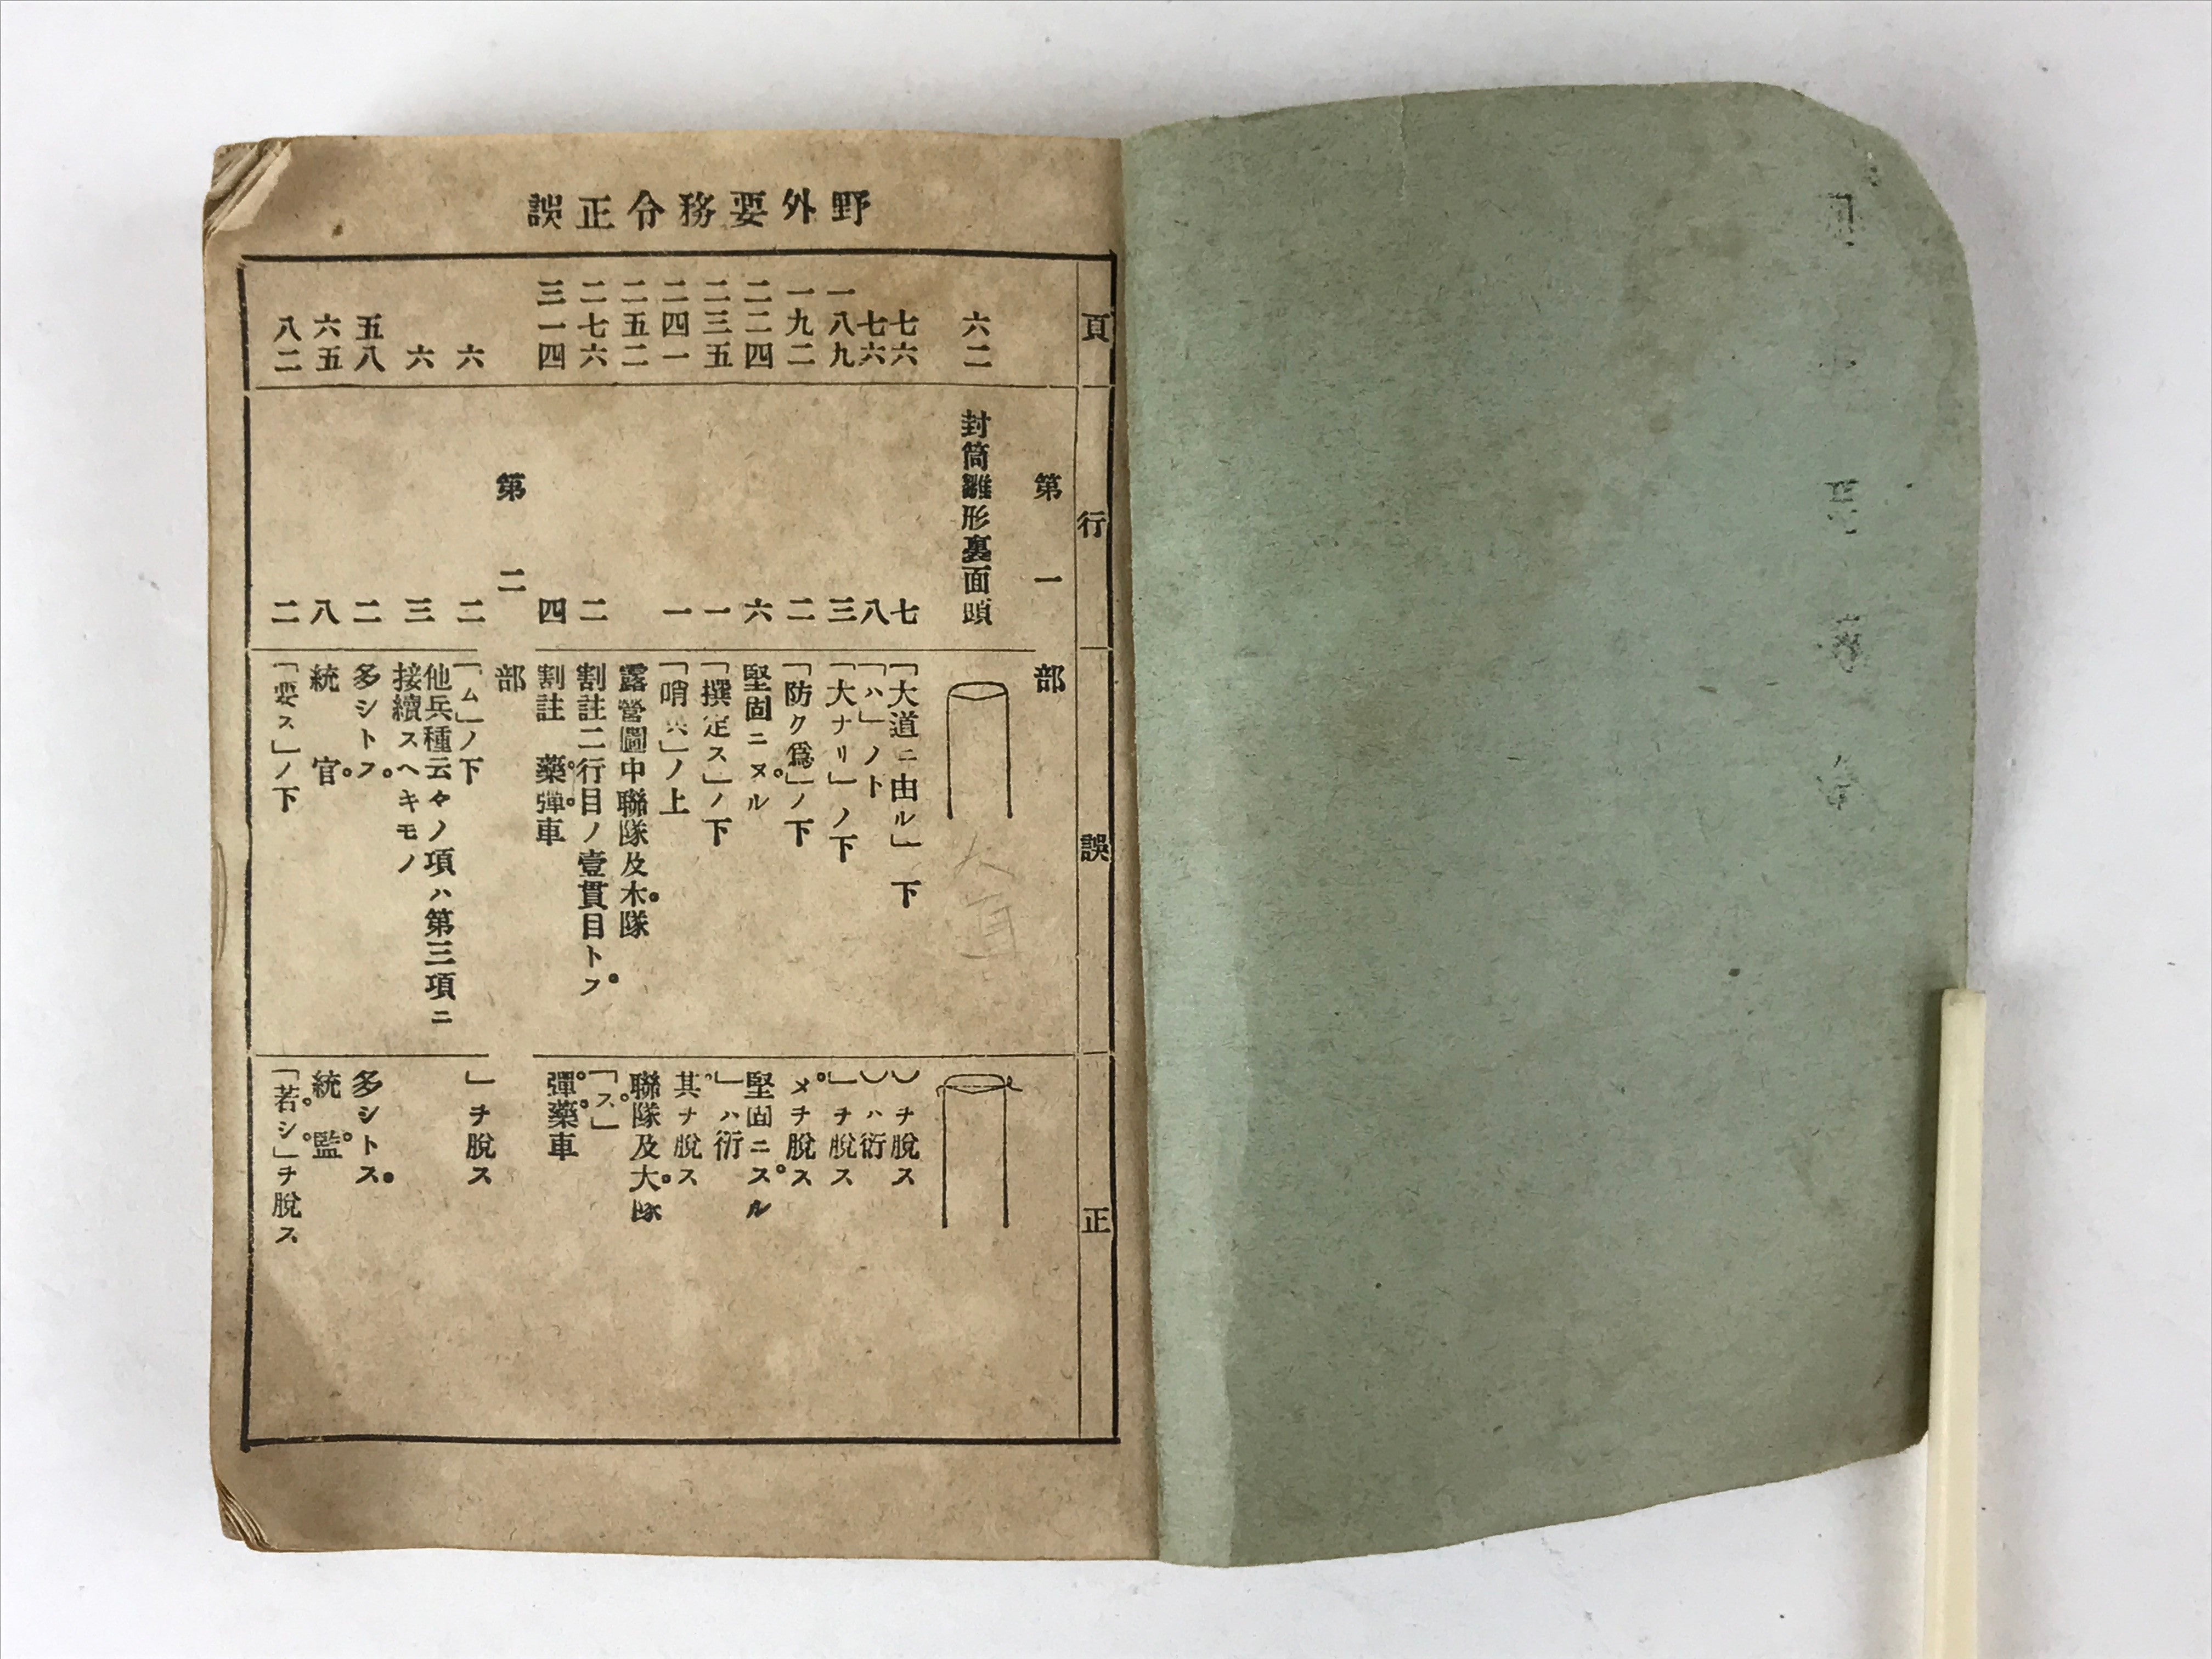 野外要務令正誤
頁 行 誤 正
第一部
六二 封筒雛形裏面頭
七六 七 「大道ニ由ル」下 」ヲ脱ス
七六 八 「ハ」ノト 」ハ衍
一八九 三 「大ナリ」ノ下 」ヲ脱ス
一九二 二 「防ク爲」ノ下 メヲ脱ス
二二四 六 堅固ニヌル 堅固ニスル
二三五 一 「撰定ス」ノ下 」ハ衍
二四一 一 「哨兵」ノ上 其ヲ脱ス
二五二 露營圖中聯隊及木隊 聯隊及大隊
二七六 二 割註二行目ノ壹貫目トフ 「ス」
三一四 四 割註 藥彈車 彈藥車
第二部
六 二 「ム」ノ下 」ヲ脱ス
六 三 他兵種云々ノ項ハ第三項ニ
接續スヘキモノ
五八 二 多シトフ 多シトス
六五 八 統官 統監
八二 二 「要ス」ノ下 「若シ」ヲ脱ス